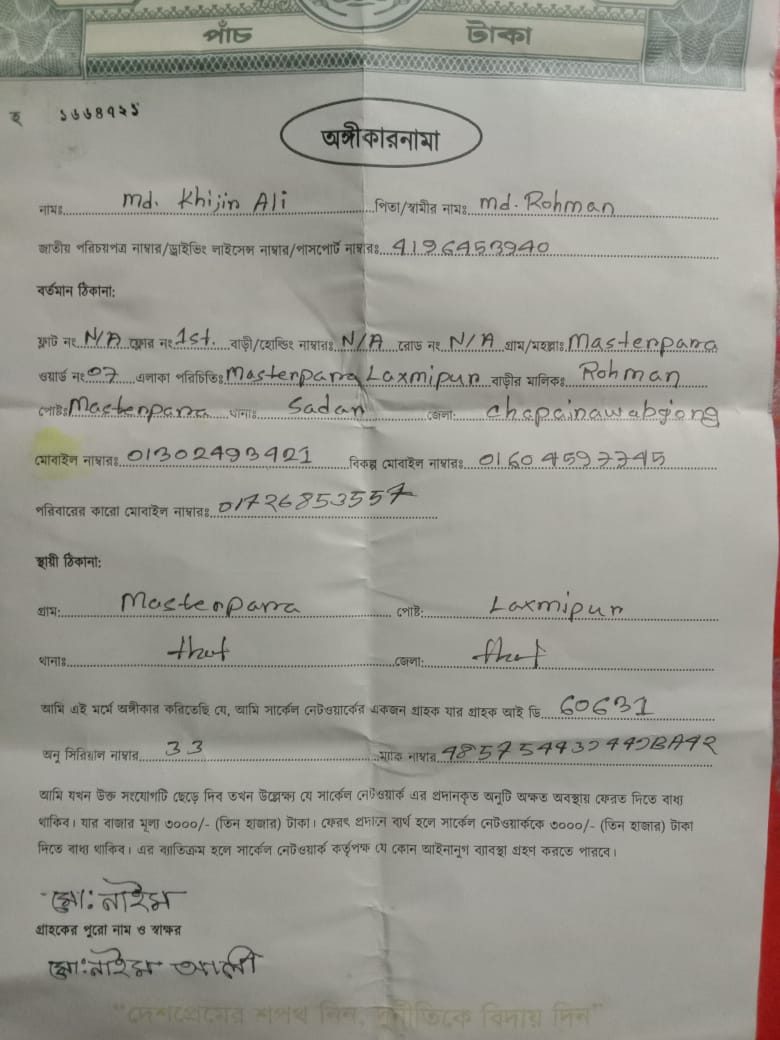 পাঁচ টাকা
হ ১৬৬৪৭২১
অঙ্গীকারনামা
নামঃ Md. Khijin Ali পিতা/স্বামীর নামঃ Md. Rohman
জাতীয় পরিচয়পত্র নাম্বার/ড্রাইভিং লাইসেন্স নাম্বার/পাসপোর্ট নাম্বারঃ 4196453940
বর্তমান ঠিকানা:
ফ্লাট নং N/A ফ্লোর নং 1st. বাড়ী/হোল্ডিং নাম্বারঃ N/A রোড নং N/A গ্রাম/মহল্লাঃ Masterparra
ওয়ার্ড নং 07 এলাকা পরিচিতিঃ Masterparra Laxmipur বাড়ীর মালিকঃ Rohman
পোষ্টঃ Masterparra থানাঃ Sadar জেলা: chapainawabgong
মোবাইল নাম্বারঃ 01302493421 বিকল্প মোবাইল নাম্বারঃ 01604597745
পরিবারের কারো মোবাইল নাম্বারঃ 01726853557
স্থায়ী ঠিকানা:
গ্রাম: Masterparra পোষ্ট: Laxmipur
থানাঃ জেলা:
আমি এই মর্মে অঙ্গীকার করিতেছি যে, আমি সার্কেল নেটওয়ার্কের একজন গ্রাহক যার গ্রাহক আই ডি 60631
অনু সিরিয়াল নাম্বার 33 ম্যাক নাম্বার
আমি যখন উক্ত সংযোগটি ছেড়ে দিব তখন উল্লেক্ষ্য যে সার্কেল নেটওয়ার্ক এর প্রদানকৃত অনুটি অক্ষত অবস্থায় ফেরত দিতে বাধ্য
থাকিব। যার বাজার মূল্য ৩০০০/- (তিন হাজার) টাকা। ফেরৎ প্রদানে ব্যর্থ হলে সার্কেল নেটওয়ার্ককে ৩০০০/- (তিন হাজার) টাকা
দিতে বাধ্য থাকিব। এর ব্যতিক্রম হলে সার্কেল নেটওয়ার্ক কর্তৃপক্ষ যে কোন আইনানুগ ব্যাবস্থা গ্রহণ করতে পারবে।
মো: নাইম
গ্রাহকের পুরো নাম ও স্বাক্ষর
মো: নাইম আলী
"দেশপ্রেমের শপথ নিন, দুর্নীতিকে বিদায় দিন"